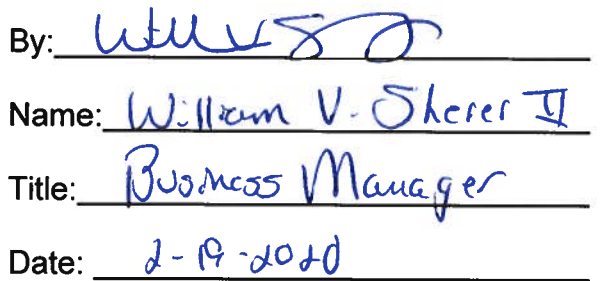 By:
Name: William V. Sherer II
Title: Business Manager
Date: 2-19-2020